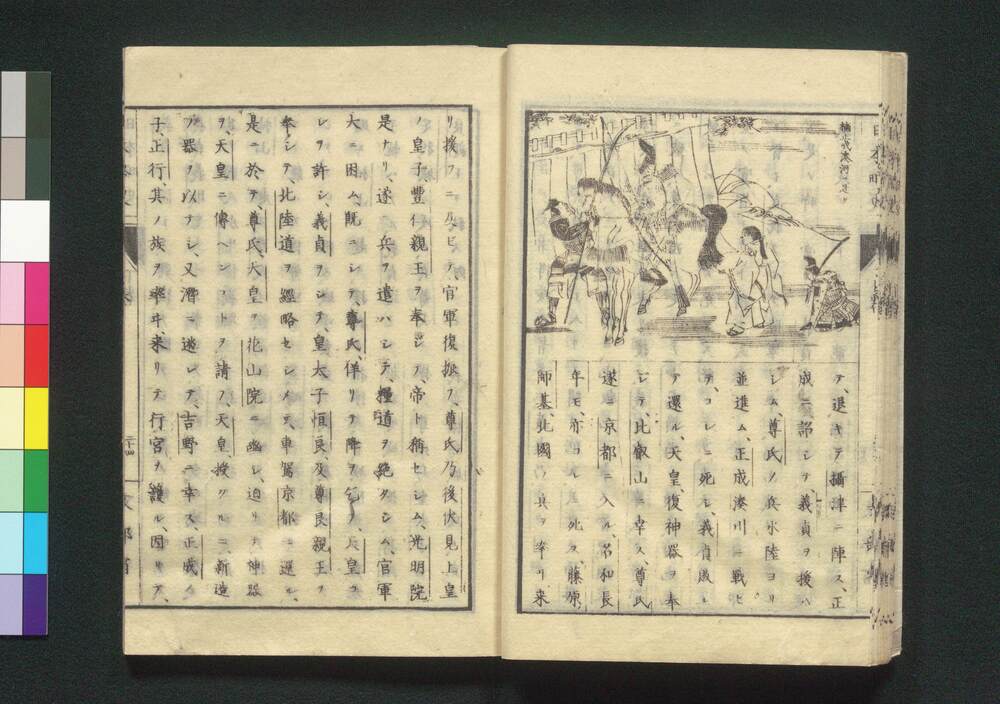 テ、退キテ攝津ニ陣ス、正
成ニ詔シテ義貞ヲ援ハ
シム、尊氏ノ兵水陸ヨリ
並進ム、正成湊川ニ戰ヒ
テ、コレニ死シ、義貞敗レ
テ還ル、天皇復神器ヲ奉
シテ、比叡山ニ幸ス、尊氏
遂ニ京都ニ入ル、名和長
年モ、亦コレニ死ス、藤原
師基北國ノ兵ヲ率リ、來
リ援フニ及ビテ、官軍復振フ、尊氏乃後伏見上皇
ノ皇子豐仁親王ヲ奉シテ、帝ト稱セシム、光明院
是ナリ、遂ニ兵ヲ遣ハシテ、糧道ヲ絶タシム、官軍
大ニ困ム、既ニシテ、尊氏、佯リテ降ヲ乞フ、天皇コ
レヲ許シ、義貞ヲシテ、皇太子恒良及尊良親王ヲ
奉シテ、北陸道ヲ經略セシメテ、車駕京都ニ還ル、
是ニ於テ、尊氏、天皇ヲ花山院ニ幽シ、迫リテ神器
ヲ、天皇ニ傳ヘンコトヲ請フ、天皇、授クルニ、新造
ノ器ヲ以テシ、又潛ニ逃レテ、吉野ニ幸ス、正成ノ
子、正行、其ノ族ヲ率ヰ、來リテ行宮ヲ護ル、因リテ、